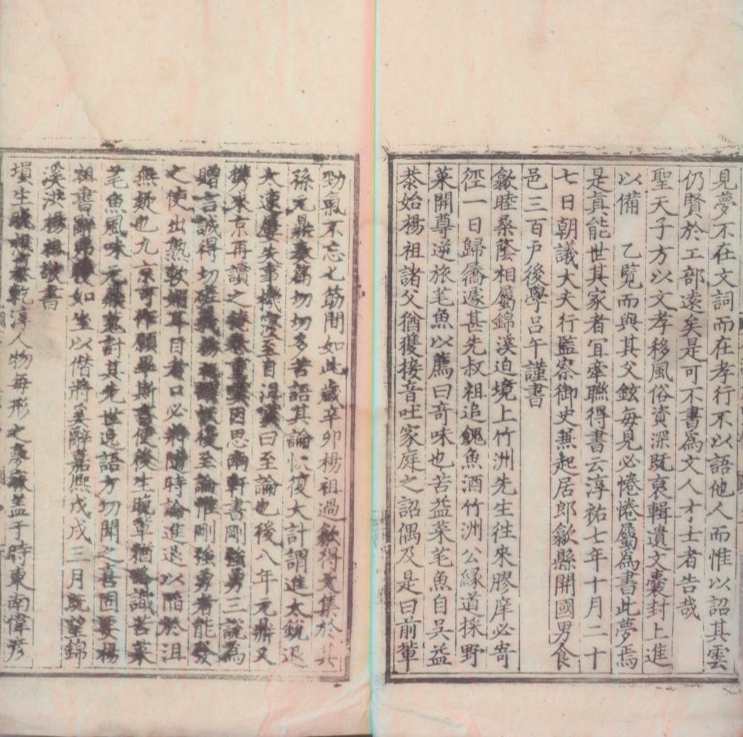 見夢不在文詞而在孝行不以語他人而惟以詔其雲
仍賢於工部遠矣是可不書為文人才士者告哉
聖天子方以文孝移風俗資深既裒輯遺文囊封上進
以備 乙覽而與其父鉉每見必惓惓屬為書此夢焉
是真能世其家者宜牽聯得書云淳祐七年十月二十
七日朝議大夫行監察御史兼起居郎歙縣開國男食
邑三百戶後學呂午謹書
歙睦桑蔭相屬錦溪迫境上竹洲先生往來膠庠必寄
徑一日歸僑遽甚先叔祖追餽魚酒竹洲公緣道採野
菜開尊逆旅芼魚以薦曰奇味也苦益菜芼魚自吳益
恭始楊祖諸父猶獲接音吐家庭之詔偶及是曰前輩
勁氣不忘匕筯間如此歲辛卯楊祖過歙得文集於
孫元鼎 切切多苦語其論 復大計謂進太銳退
太速 至 曰至論也後八年元鼎又
携來京再讀之 因思南軒書剛強勇三說為
贈言誠得切 至論惟剛強勇者能發
之使出熟軟媚耳目者口必將隨時論進退以陷於沮
無難也九 可作願畢斯 使後生晚輩猶 識苦菜
芼魚風味元 討其先世逸語方切聞之喜固要楊
祖書 後如生以偕將 辭嘉熙戊戌三月既望錦
溪洪楊祖 書
塤生 乾淳人物每形之夢寐蓋于時東南偉彥